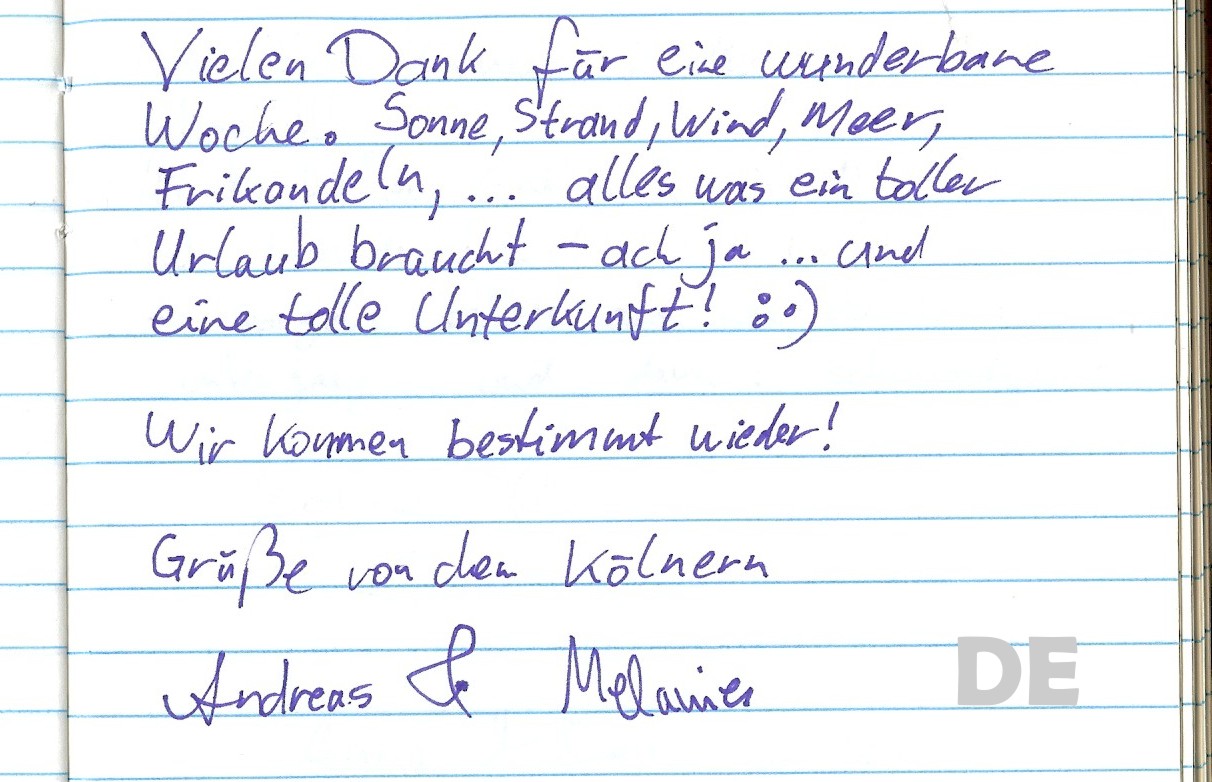 Vielen Dank für eine wunderbare
Woche. Sonne, Strand, Wind, Meer,
Frikandeln, ... alles was ein toller
Urlaub braucht – ach ja ... und
eine tolle Unterkunft! :·)
Wir kommen bestimmt wieder!
Grüße von den Kölnern
Andreas & Melanie
DE